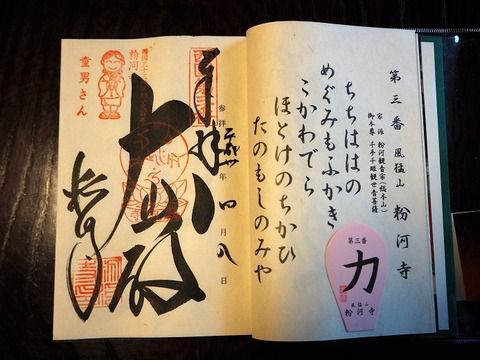 第三番 風猛山 粉河寺
宗派 粉河観音宗(総本山)
御本尊 千手千眼観世音菩薩
ちちははの
めぐみもふかき
こかわでら
ほとけのちかひ
たのもしのみや
第三番
力
風猛山
粉河寺
奉拝
参拝
年 四月八日
大悲殿
粉河寺
粉河
童男さん